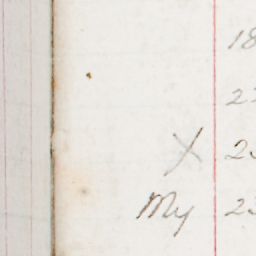 18
22
X 2
My 23